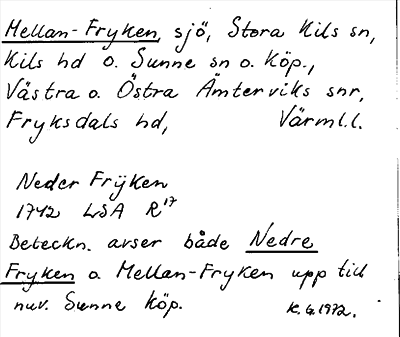 Mellan-Fryken, sjö, Stora Kils sn,
Kils hd o. Sunne sn o. Köp.,
Västra o. Östra Ämterviks snr,
Fryksdals hd, Värml.l.
Neder Frÿken
1742 LSA R17
Beteckn. avser både Nedre
Fryken o Mellan-Fryken upp till
nuv. Sunne köp.
K.G.1972.